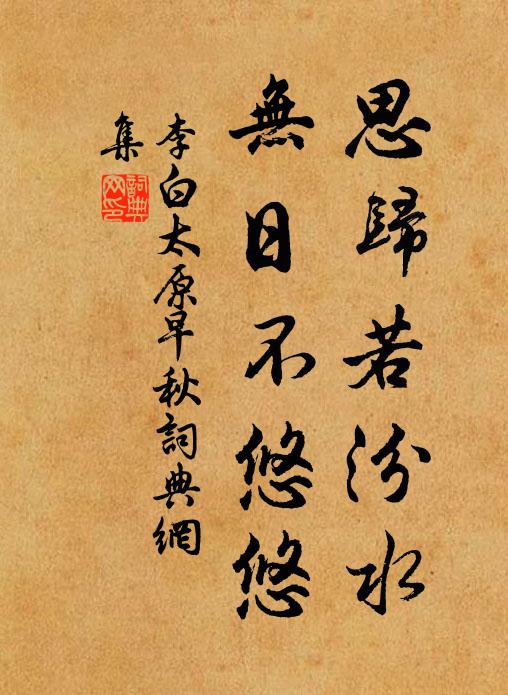 思歸若汾水
無日不悠悠
李白太原早秋詞典網
集
詞典
网印